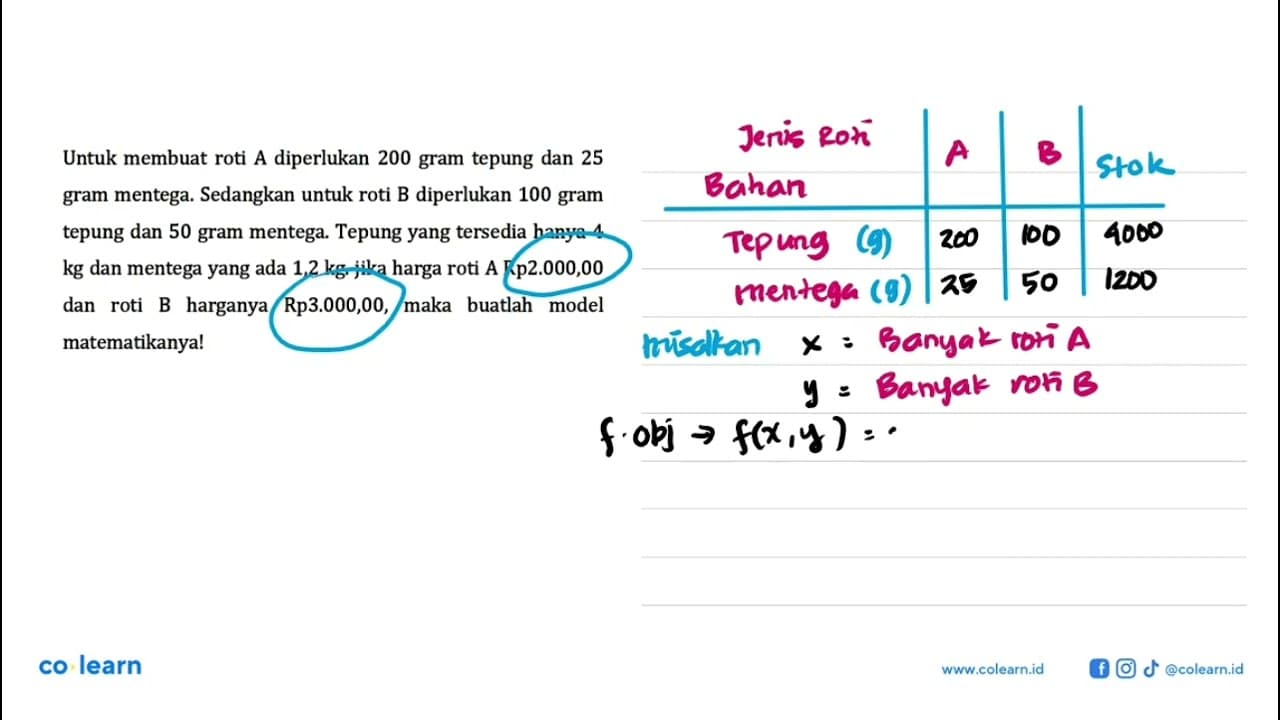 Untuk membuat roti A diperlukan 200 gram tepung dan 25
gram mentega. Sedangkan untuk roti B diperlukan 100 gram
tepung dan 50 gram mentega. Tepung yang tersedia hanya 4
kg dan mentega yang ada 1,2 kg. jika harga roti A Rp2.000,00
dan roti B harganya Rp3.000,00, maka buatlah model
matematikanya!
Jenis Roti
Bahan
A B Stok
Tepung (g) 200 100 4000
mentega (g) 25 50 1200
misalkan x = Banyak roti A
y = Banyak roti B
f. obj → f(x,y) =
co learn
www.colearn.id
@colearn.id